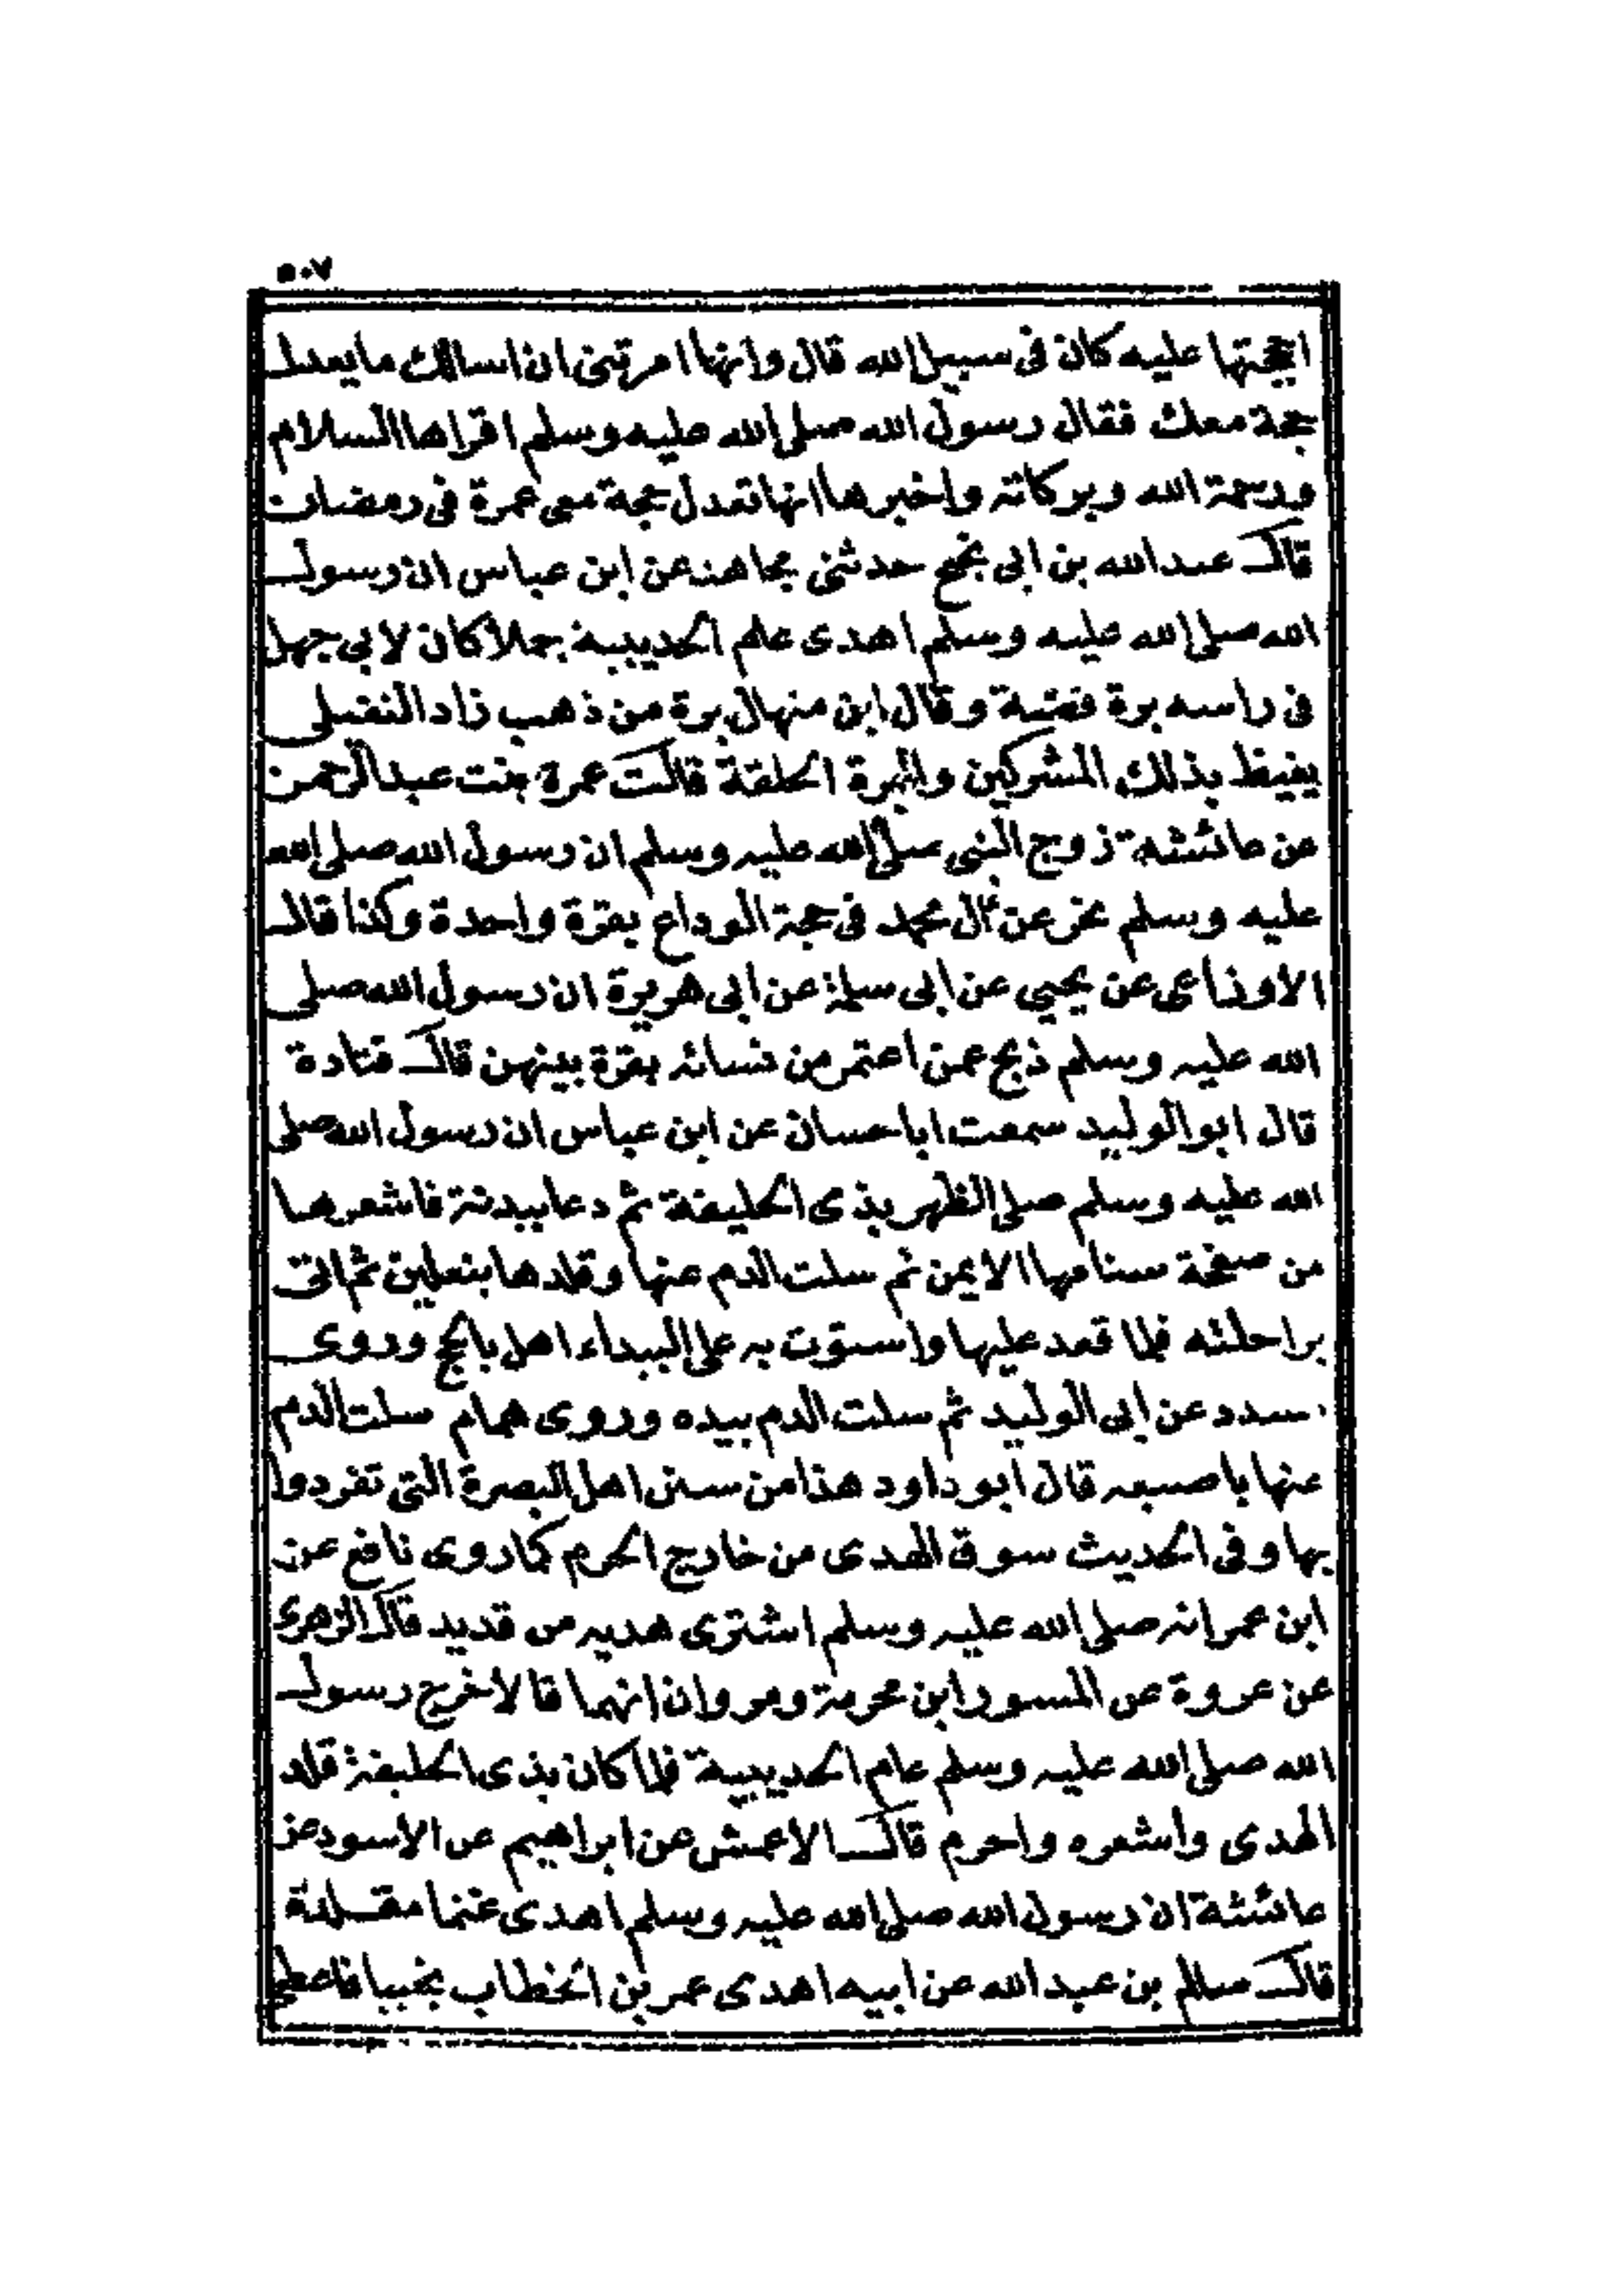 ٥٠٧
احججتها عليه كان فى سبيل الله قال وانها امرتنى ان اسالك ما يعدل
حجة معك فقال رسول الله صلى الله عليه وسلم اقراها السلام
ورحمة الله وبركاته واخبرها انها تعدل حجة معى عمرة فى رمضان
قال عبد الله بن ابى نجيح حدثنى مجاهد عن ابن عباس ان رسول
الله صلى الله عليه وسلم اهدى عام الحديبية جملا كان لابى جهل
فى راسه برة فضة وقال ابن منهال برة من ذهب زاد النفيلى
يغيظ بذلك المشركين والبرة الحلقة قالت عمرة بنت عبد الرحمن
عن عائشة زوج النبى صلى الله عليه وسلم ان رسول الله صلى الله
عليه وسلم نحر عن آل محمد فى حجة الوداع بقرة واحدة وكذا قال
الاوزاعى عن يحيى عن ابى سلمة عن ابى هريرة ان رسول الله صلى
الله عليه وسلم ذبح عمن اعتمر من نسائه بقرة بينهن قال قتادة
قال ابو الوليد سمعت ابا حسان عن ابن عباس ان رسول الله صلى
الله عليه وسلم صلى الظهر بذى الحليفة ثم دعا ببدنة فاشعرها
من صفحة سنامها الايمن ثم سلت الدم عنها وقلدها بنعلين ثم اتى
براحلته فلما قعد عليها واستوت به على البيداء اهل بالحج وروى
مسدد عن ابى الوليد ثم سلت الدم بيده وروى همام سلت الدم
عنها باصبعه قال ابو داود هذا من سنن اهل البصرة التى تفردوا
بها وفى الحديث سوق الهدى من خارج الحرم كما روى نافع عن
ابن عمر انه صلى الله عليه وسلم اشترى هديه من قديد قال الزهرى
عن عروة عن المسور ابن مخرمة ومروان انهما قالا خرج رسول
الله صلى الله عليه وسلم عام الحديبية فلما كان بذى الحليفة قلد
الهدى واشعره واحرم قال الاعمش عن ابراهيم عن الاسود عن
عائشة ان رسول الله صلى الله عليه وسلم اهدى غنما مقلدة
قال سالم بن عبد الله عن ابيه اهدى عمر بن الخطاب بختيا فاعطى